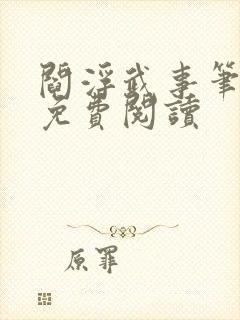 閻浮武事筆
免費閱讀
原罪